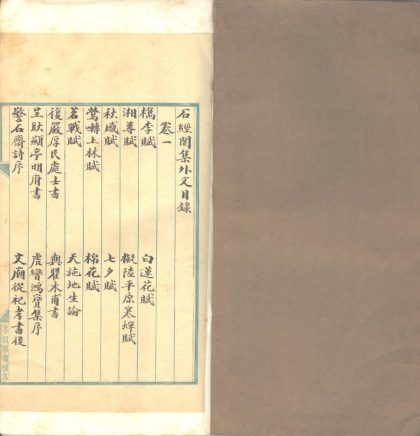 石經閣集外文目錄
卷一
檇李賦 白蓮花賦
湘尊賦 擬陸平原寒蟬賦
秋感賦 七夕賦
鶯囀上林賦 棉花賦
茗戰賦 天施地生論
復嚴厚民處士書 與瞿木甫書
呈耿顧亭明府書 鴻寶集序
警石齋詩序 文廟從祀考書後